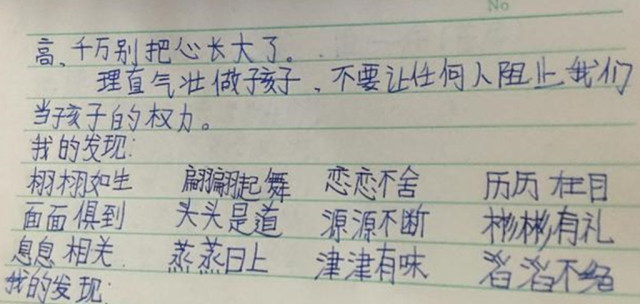 No
高、千万别把心长大了。
理直气壮做孩子，不要让任何人阻止我们
当孩子的权力。
我的发现:
栩栩如生 翩翩起舞 恋恋不舍 历历在目
面面俱到 头头是道 源源不断 彬彬有礼
息息相关 蒸蒸日上 津津有味 滔滔不绝
我的发现: